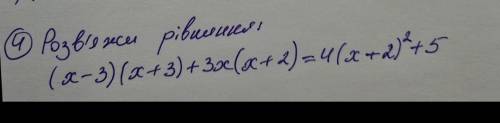 ④ Розв'яжи рівняння:
(x-3)(x+3)+3x(x+2)=4(x+2)²+5